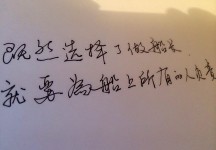 既然选择了做船长
就要为船上所有的人负责